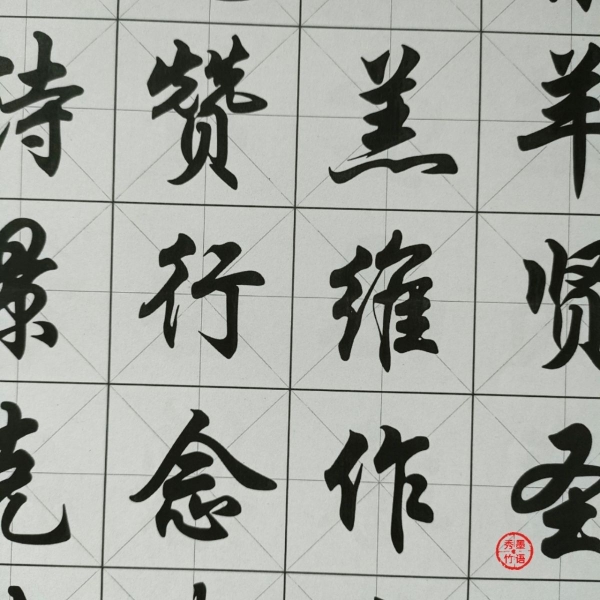 诗赞羔羊
景行维贤
克念作圣
墨语
秀竹